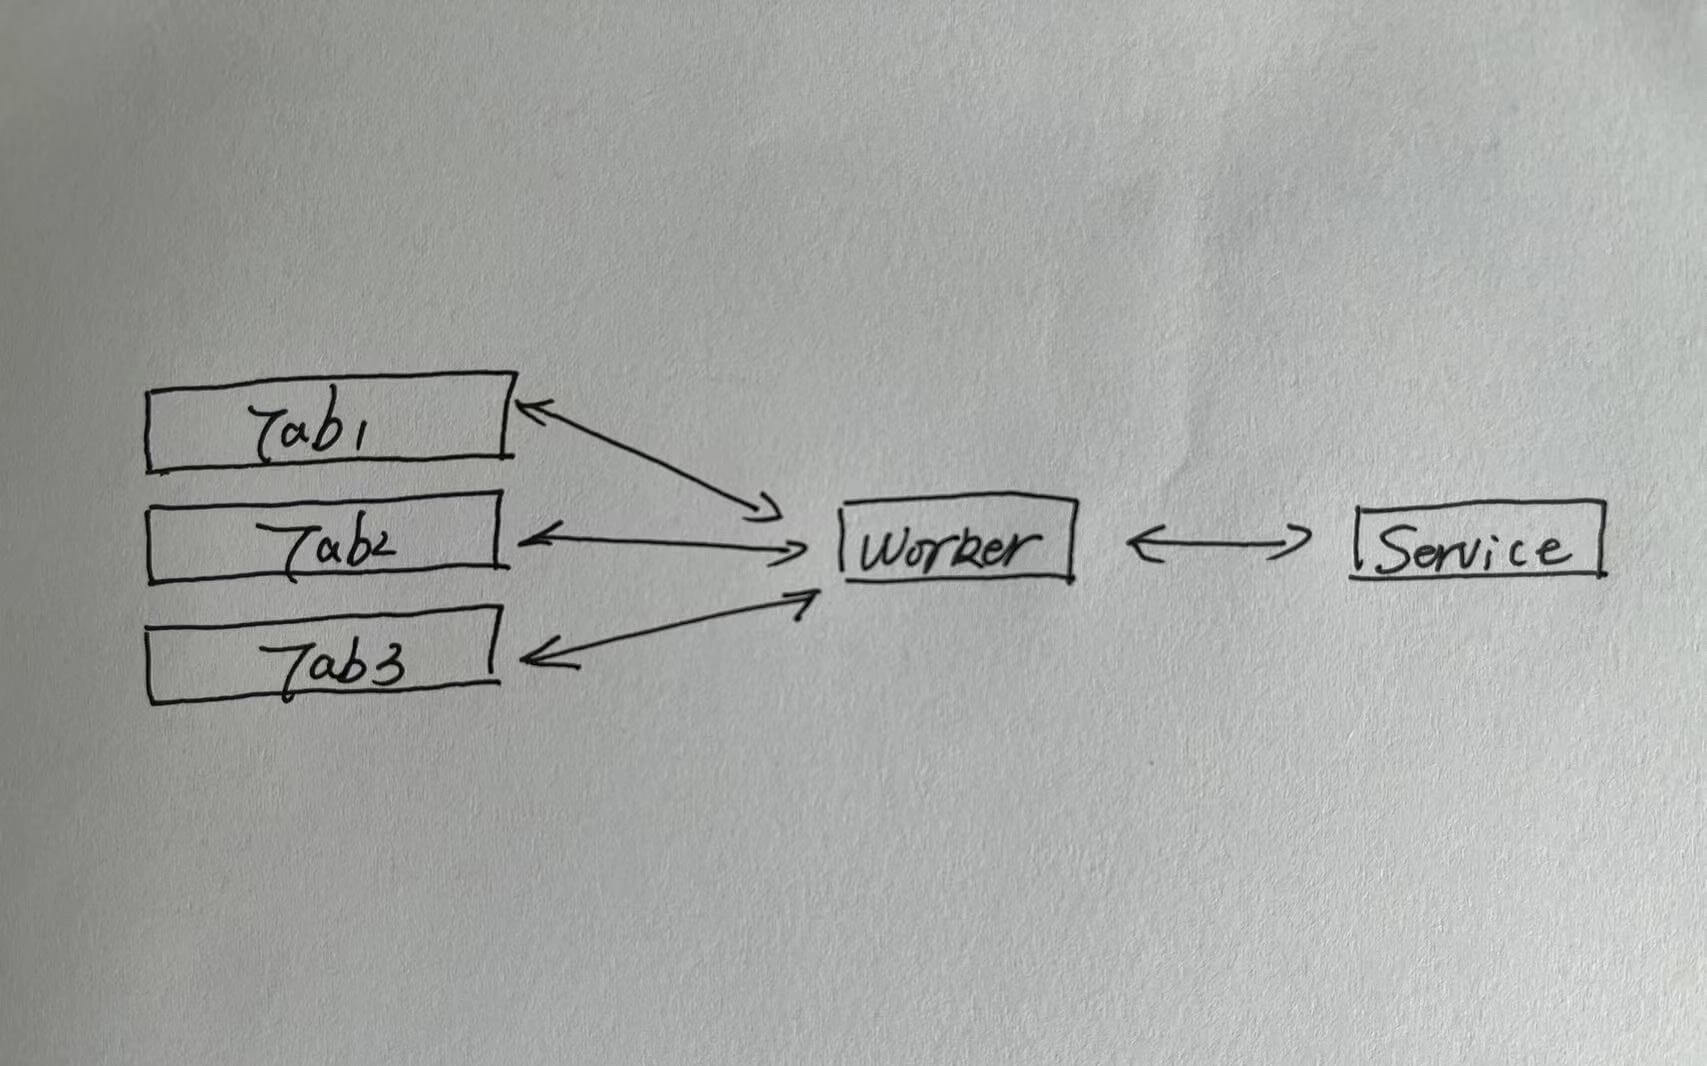 Tab1
Tab2
Tab3
Worker
Service